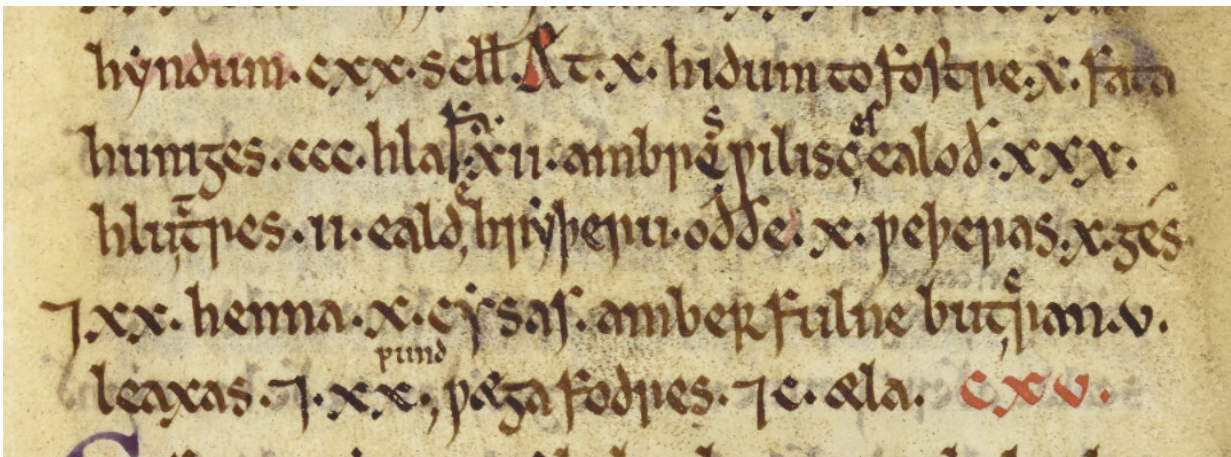 hẏndum. cxx. scll. At. x. hidum to fostre. x. fata
huniges. ccc. hlafa. xii. ambres ƿilisces ealoð. xxx.
hlutatres. ii. ealde hrẏþeru. oððe. x. ƿeþeras. x. gés.
⁊. xx. henna. x. cẏsas. amber fulne buteran. v.
leaxas. ⁊. xx. pund ƿæga fodres. ⁊ c. æla. cxv.